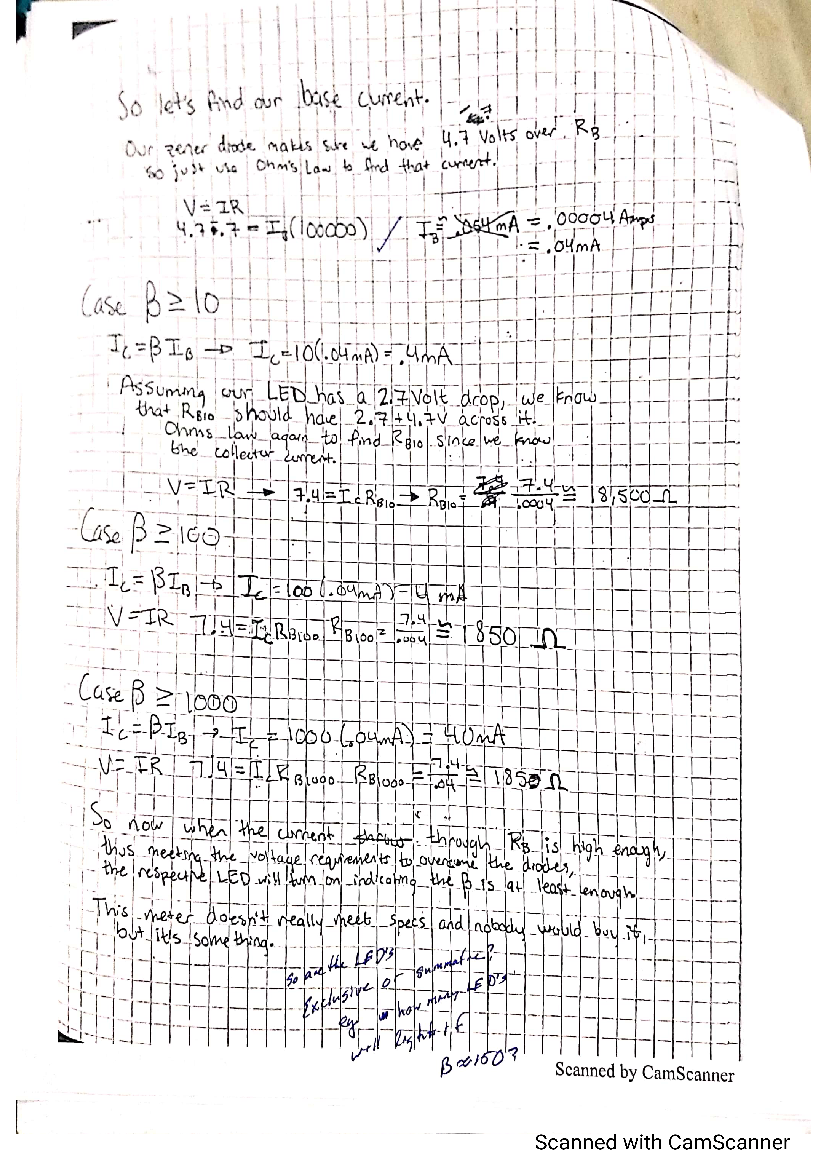 So let's find our base current.
Our zener diode makes sure we have 4.7 Volts over R_B
so just use Ohm's Law to find that current.
V = IR
4.7-.7 = I_B(100000) / I_B ≅ .054mA = .00004 Amps
= .04mA
Case β ≥ 10
I_C = βI_B → I_C = 10(.04mA) = .4mA
Assuming our LED has a 2.7 Volt drop, we know
that R_B10 should have 2.7+4.7V across it.
Ohms law again to find R_B10 since we know
the collector current.
V = IR → 7.4 = I_C R_B10 → R_B10 = 7.4/.0004 ≅ 18,500 Ω
Case β ≥ 100
I_C = βI_B → I_C = 100(.04mA) = 4 mA
V = IR 7.4 = I_C R_B100 R_B100 = 7.4/.004 ≅ 1850 Ω
Case β ≥ 1000
I_C = βI_B → I_C = 1000(.04mA) = 40mA
V = IR 7.4 = I_C R_B1000 R_B1000 = 7.4/.04 ≅ 185 Ω
So now when the current through R_B is high enough,
thus meeting the voltage requirements to overcome the diodes,
the respective LED will turn on indicating the β is at least enough.
This meter doesn't really meet specs and nobody would buy it,
but it's something.
So are the LED's
Exclusive or summative?
eg how many LED's
will light if
β≈150?
Scanned by CamScanner
Scanned with CamScanner